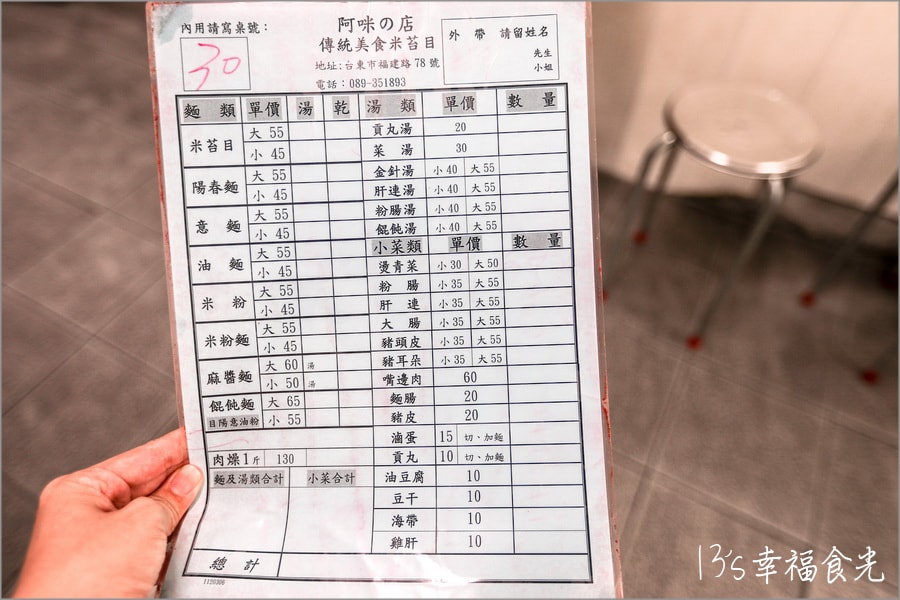 內用請寫桌號：
30
阿咪の店
傳統美食米苔目
地址:台東市福建路78號
電話：089-351893
外 帶 請留姓名
先生
小姐
麵 類 單價 湯 乾
米苔目 大 55
小 45
陽春麵 大 55
小 45
意 麵 大 55
小 45
油 麵 大 55
小 45
米 粉 大 55
小 45
米粉麵 大 55
小 45
麻醬麵 大 60 湯
小 50 湯
餛飩麵 大 65
目陽意油粉 小 55
肉燥1斤 130
麵及湯類合計 小菜合計
總 計
1120306
湯 類 單價 數 量
貢丸湯 20
菜 湯 30
金針湯 小 40 大 55
肝連湯 小 40 大 55
粉腸湯 小 40 大 55
餛飩湯 小 40 大 55
小菜類 單價 數 量
燙青菜 小 30 大 50
粉 腸 小 35 大 55
肝 連 小 35 大 55
大 腸 小 35 大 55
豬頭皮 小 35 大 55
豬耳朵 小 35 大 55
嘴邊肉 60
麵腸 20
豬皮 20
滷蛋 15 切、加麵
貢丸 10 切、加麵
油豆腐 10
豆干 10
海帶 10
雞肝 10
13's幸福食光